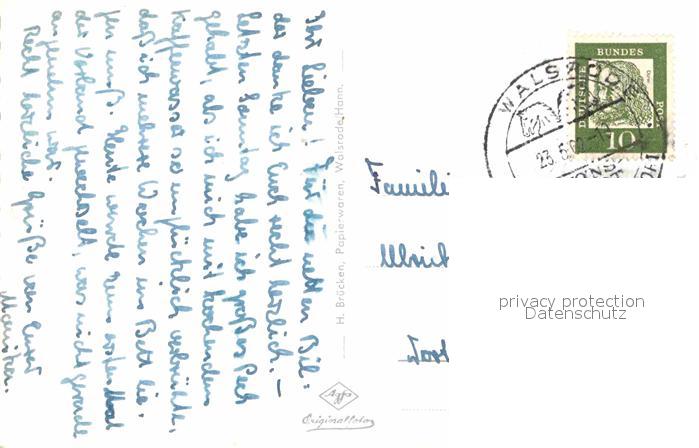 Ihr Lieben! Für die netten Bil-
der danke ich Euch recht herzlich. –
Letzten Sonntag habe ich großes Pech
gehabt, als ich mich mit kochendem
Kaffeewasser so unglücklich verbrühte,
daß ich mehrere Wochen im Bett lie-
gen muß. Heute wurde zum ersten Mal
der Verband gewechselt, was nicht gerade
angenehm war.
Recht herzliche Grüße von Eurer
H. Brücken, Papierwaren, Walsrode/Hann.
Agfa
Originalfoto
WALSRODE
23.5.62
DEUTSCHE
BUNDES
POST
Dürer
10
Famili
Ulrich
privacy protection
Datenschutz